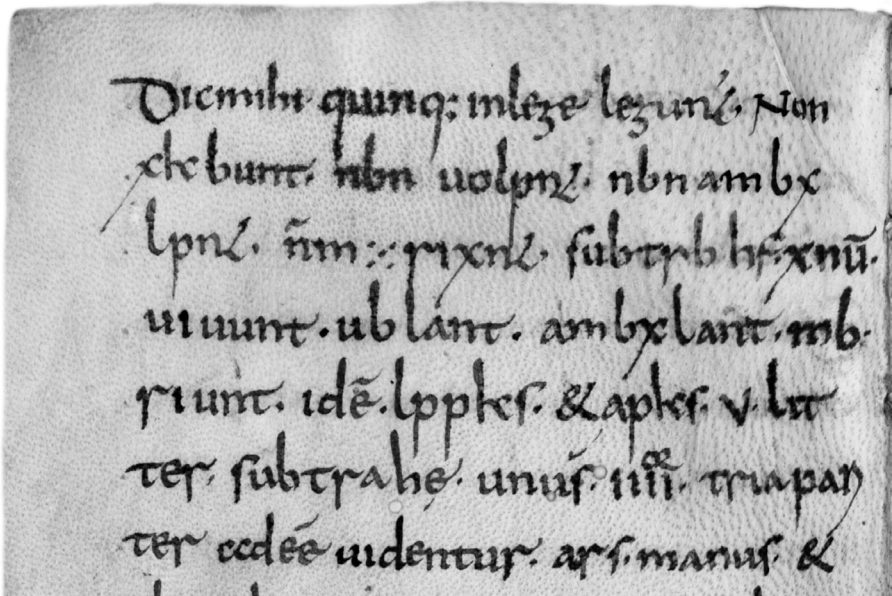 Dicmihi quinq: inlege legunt̃. Non
xhcbunt. hbn uolpnt̃. nbnambx
lpnt̃. n̄m rixnt̃. subtrbhf. xnū.
uiuunt. ublant. ambxlant. mb.
riunt. idē. lppkes. & apkes. v. lit
ter. subtrahe. unus. iiii. tria par
ter ccdeē uidentur. ars. manus. &